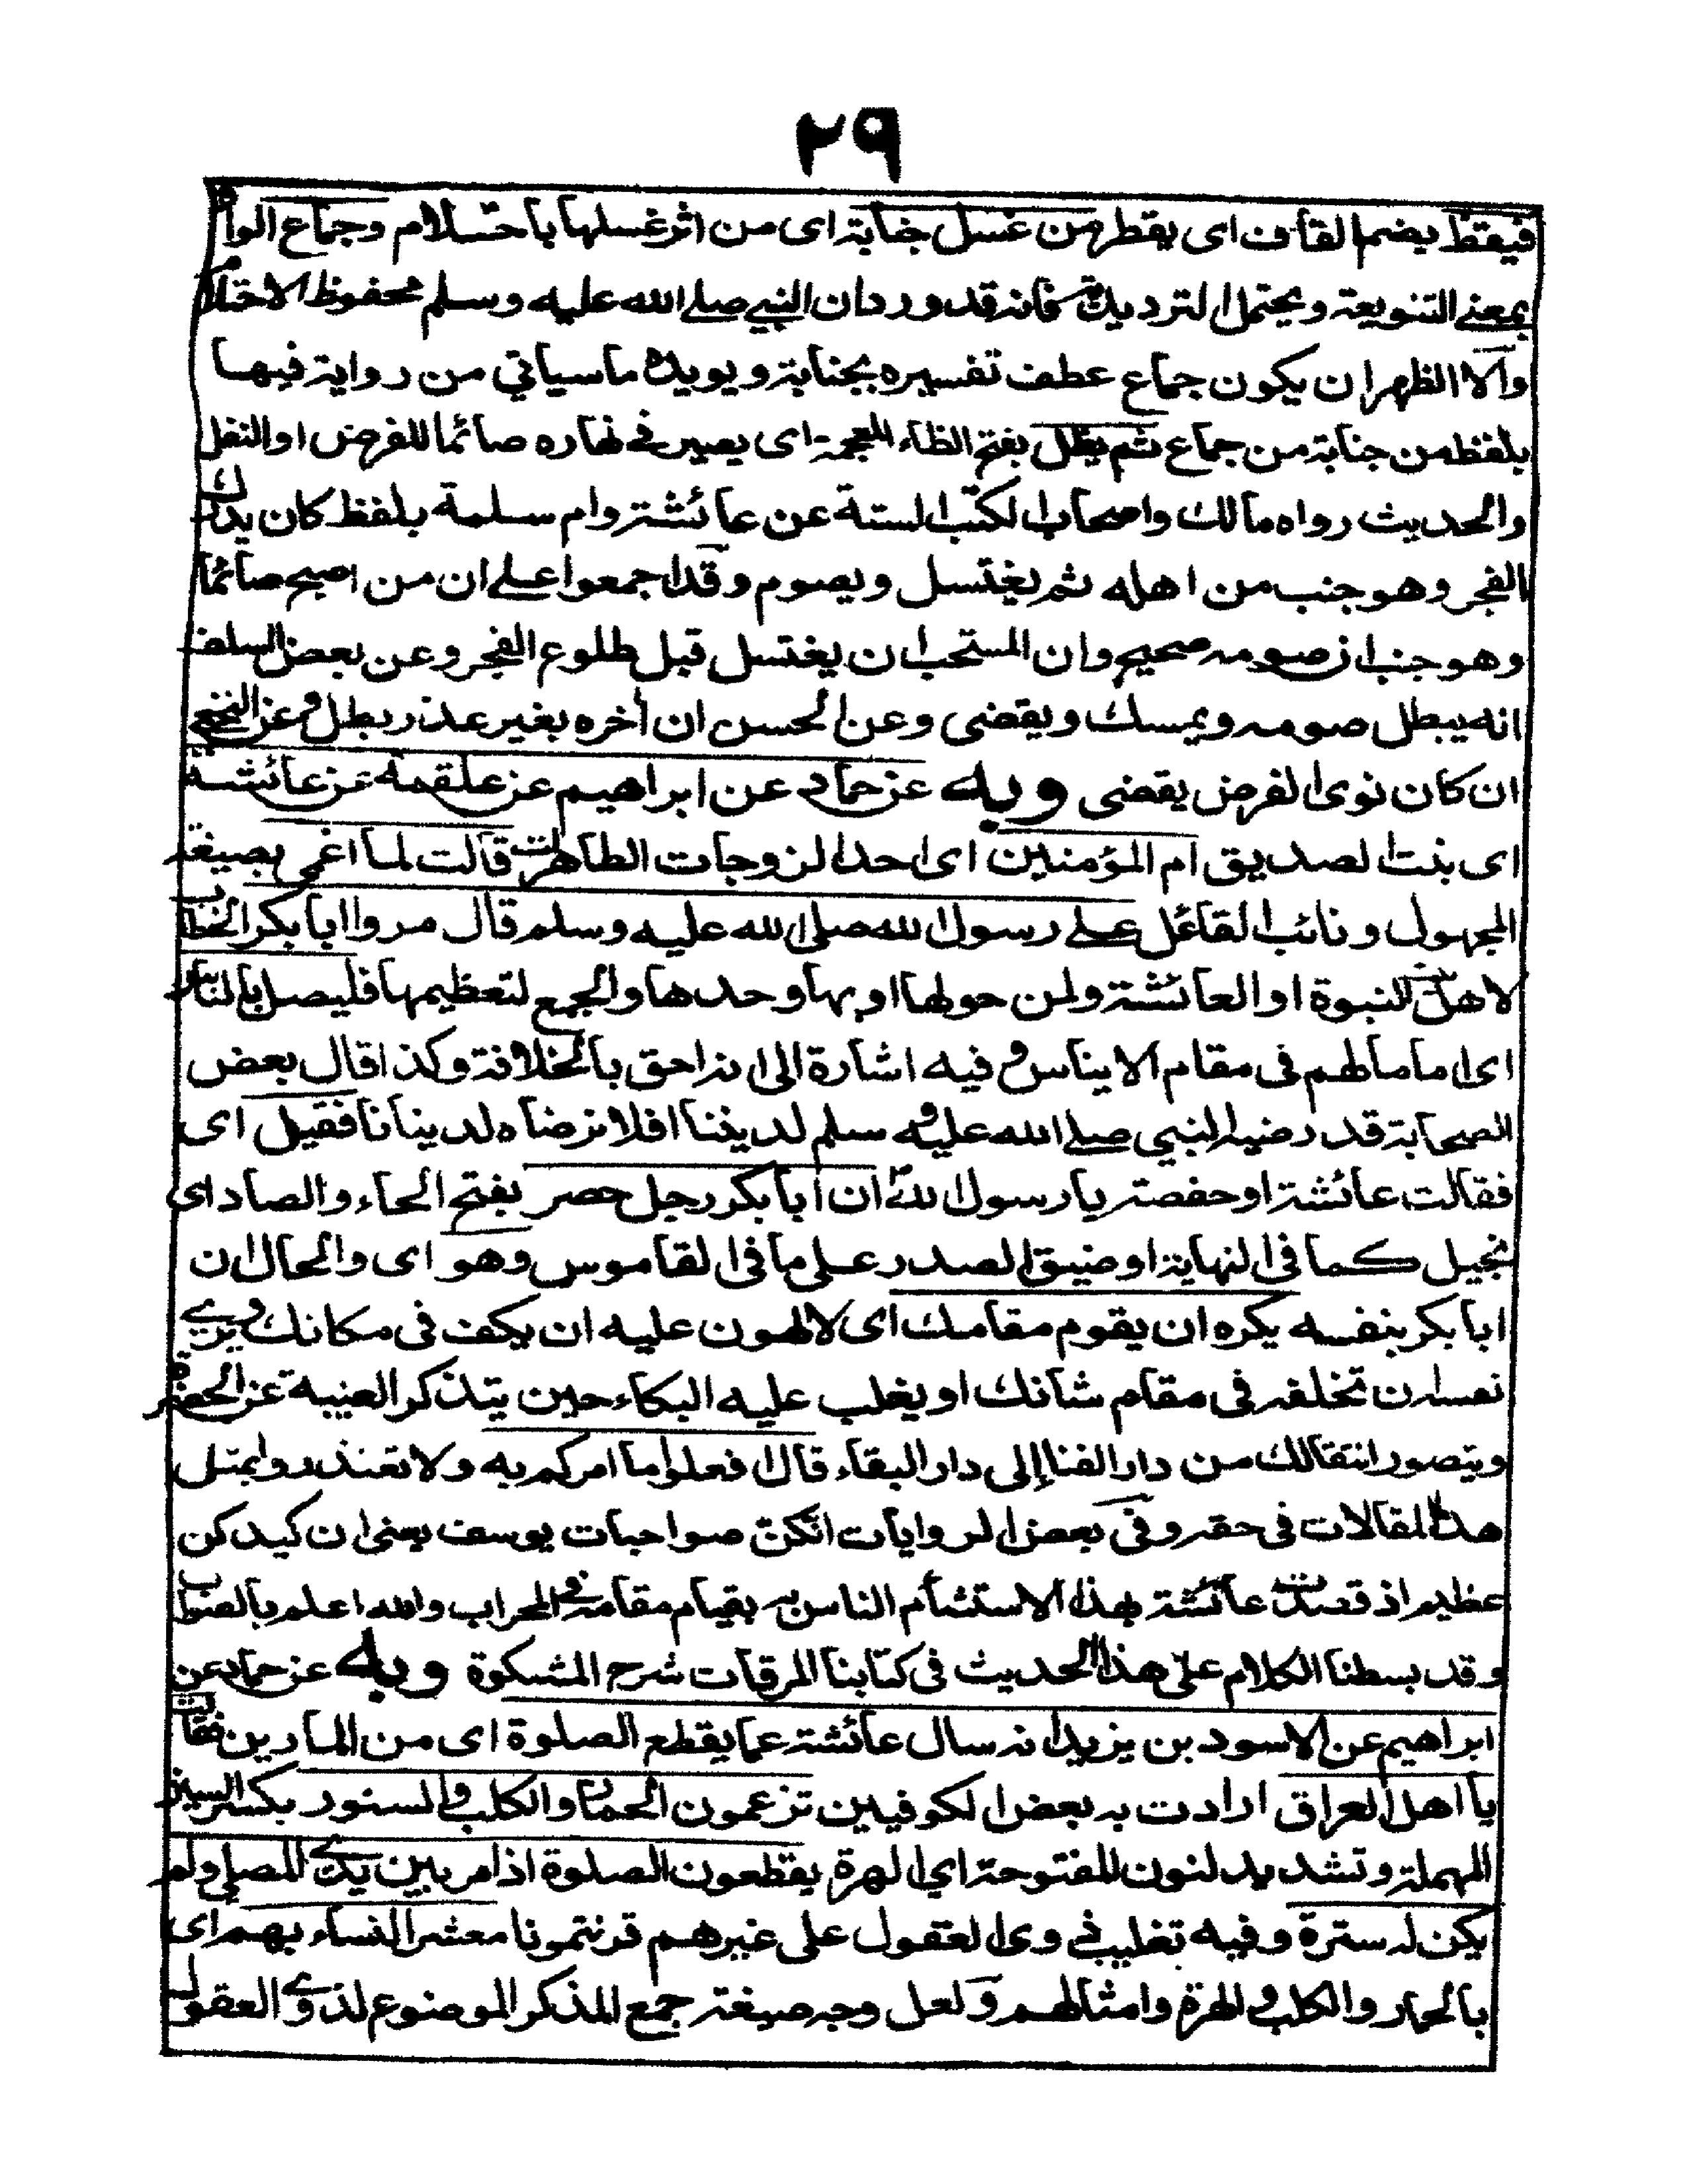 ٢٩
فيقطر بضم القاف اى يقطر من غسل جنابة اى من اثر غسلها باحتلام وجماع الواو
بمعنى التنويعة ويحتمل الترديد فانه قد ورد ان النبي صلى الله عليه وسلم محفوظ الاحتلام
والاظهر ان يكون جماع عطف تفسيره بجنابة ويويده ما سياتي من رواية فيها
بلفظ من جنابة من جماع ثم يظل بفتح الظاء المعجمة اى يصير في نهاره صائما للفرض او النفل
والحديث رواه مالك واصحاب الكتب الستة عن عائشة وام سلمة بلفظ كان يدركه
الفجر وهو جنب من اهله ثم يغتسل ويصوم وقد اجمعوا على ان من اصبح صائما
وهو جنب ان صومه صحيح وان المستحب ان يغتسل قبل طلوع الفجر وعن بعض السلف
انه يبطل صومه ويمسك ويقضى وعن الحسن ان اخره بغير عذر بطل وعن النخعي
ان كان نوى الفرض يقضى وبه عن حماد عن ابراهيم عن علقمة عن عائشة
اى بنت الصديق ام المؤمنين اى احد الزوجات الطاهرات قالت لما اغمى بصيغة
المجهول ونائب الفاعل على رسول الله صلى الله عليه وسلم قال مروا ابا بكر الخطاب
لاهل النبوة او العائشة ولمن حولها او بها وحدها والجمع لتعظيمها فليصل بالناس
اى اماما لهم فى مقام الايناس وفيه اشارة الى انه احق بالخلافة وكذا قال بعض
الصحابة قد رضيه النبي صلى الله عليه وسلم لديننا افلا نرضاه لدينانا فقيل اى
فقالت عائشة او حفصة يا رسول الله ان ابا بكر رجل حصر بفتح الحاء والصاد اى
بخيل كما فى النهاية او ضيق الصدر على ما فى القاموس وهو اى والحال ان
ابا بكر بنفسه يكره ان يقوم مقامك اى لا لهون عليه ان يكف فى مكانك ويرى
نفسه ان تخلفه فى مقام شانك او يغلب عليه البكاء حين يتذكر الغيبة عن الحضرة
ويتصور انتقالك من دار الفنا الى دار البقاء قال افعلوا ما امركم به ولا تعتذروا بمثل
هذه المقالات فى حقه وفى بعض الروايات انكن صواحبات يوسف يعنى ان كيدكن
عظيم اذ قصدت عائشة بهذا الاستشأم الناس به بقيام مقامه فى المحراب والله اعلم بالصواب
وقد بسطنا الكلام على هذا الحديث فى كتابنا المرقات شرح المشكوة وبه عن حماد عن
ابراهيم عن الاسود بن يزيد انه سال عائشة عما يقطع الصلوة اى من المارين فقالت
يا اهل العراق ارادت به بعض الكوفيين تزعمون الحمار والكلب والسنور بكسر السين
المهملة وتشديد لنون المفتوحة اى الهرة يقطعون الصلوة اذا مر بين يدي المصلي ولم
يكن له سترة وفيه تغليب ذوى العقول على غيرهم قرنتمونا معشر النساء بهم اى
بالحمار والكلب والهرة وامثالهم ولعل وجه صيغة جمع المذكر الموضوع لذوي العقول